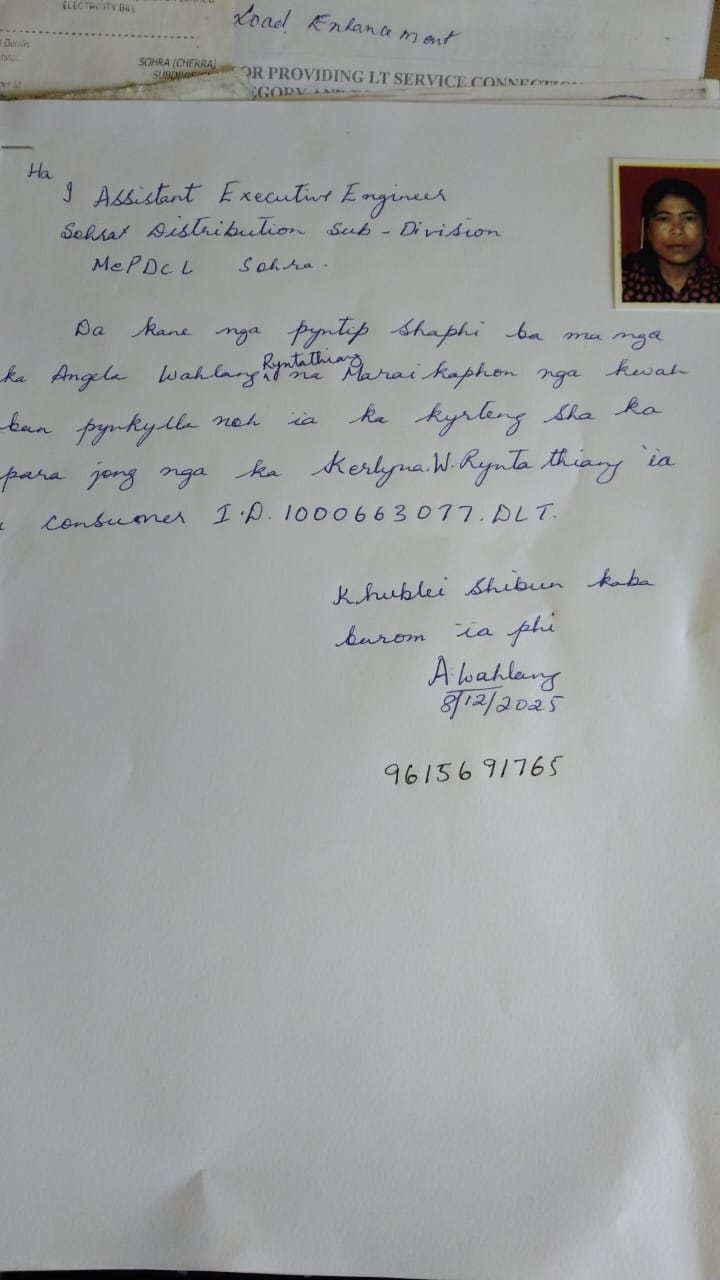 ELECTRICITY BILL
Load Enhancement
SOHRA (CHERRA)
OR PROVIDING LT SERVICE CONNECTION
Ha
I Assistant Executive Engineer
Sohra Distribution Sub - Division
MePDCL Sohra.
Da kane nga pyntip shaphi ba ma nga
ka Angela Wahlang Ryntathiang na Marai kaphon nga kwah
ban pynkylla noh ia ka kyrteng sha ka
para jong nga ka Kerlyna.W.Ryntathiang ia
consumer I.D. 1000663077. DLT.
Khublei shibun kaba
burom ia phi
A.Wahlang
8/12/2025
9615691765